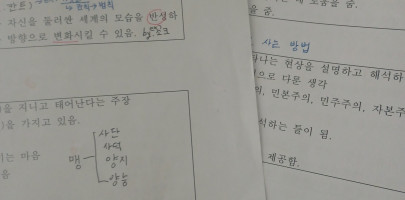 반트)
자신을 둘러싼 세계의 모습을 반성하
방향으로 변화시킬 수 있음.
을 지니고 태어난다는 주장
을 가지고 있음.
는 마음
음
맹
사단
사덕
양지
양능
을 줌.
사는 방법
나는 현상을 설명하고 해석하
으로 다룬 생각
의, 민본주의, 민주주의, 자본주
석하는 틀이 됨.
제공함.